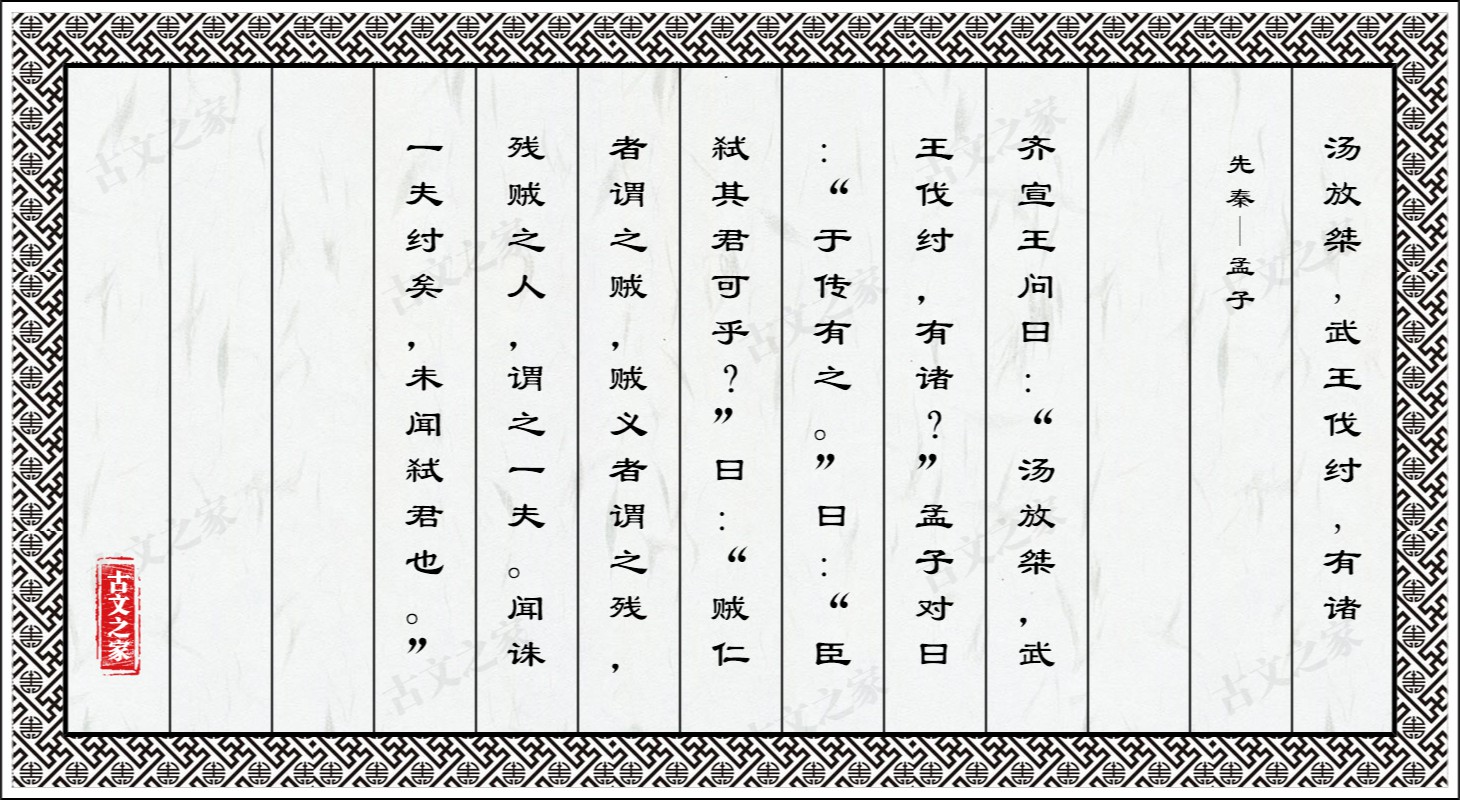 汤放桀，武王伐纣，有诸
先秦—孟子
齐宣王问曰：“汤放桀，武
王伐纣，有诸？”孟子对曰
：“于传有之。”曰：“臣
弑其君可乎？”曰：“贼仁
者谓之贼，贼义者谓之残，
残贼之人，谓之一夫。闻诛
一夫纣矣，未闻弑君也。”
古文之家